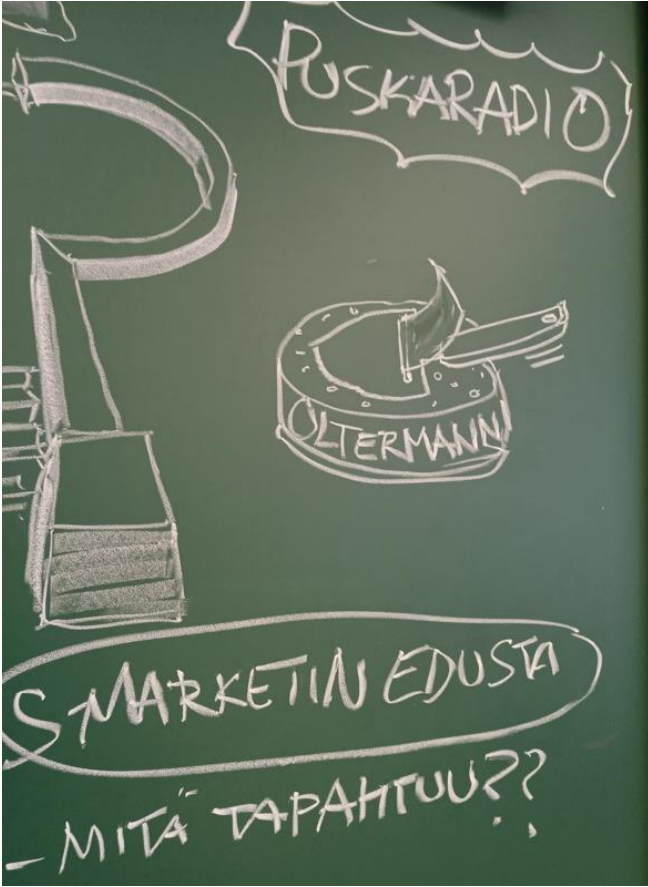 PUSKARADIO
OLTERMANNI
S-MARKETIN EDUSTA
- MITÄ TAPAHTUU??